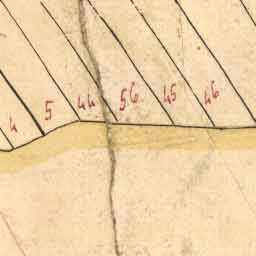 4 5 44 56 45 46